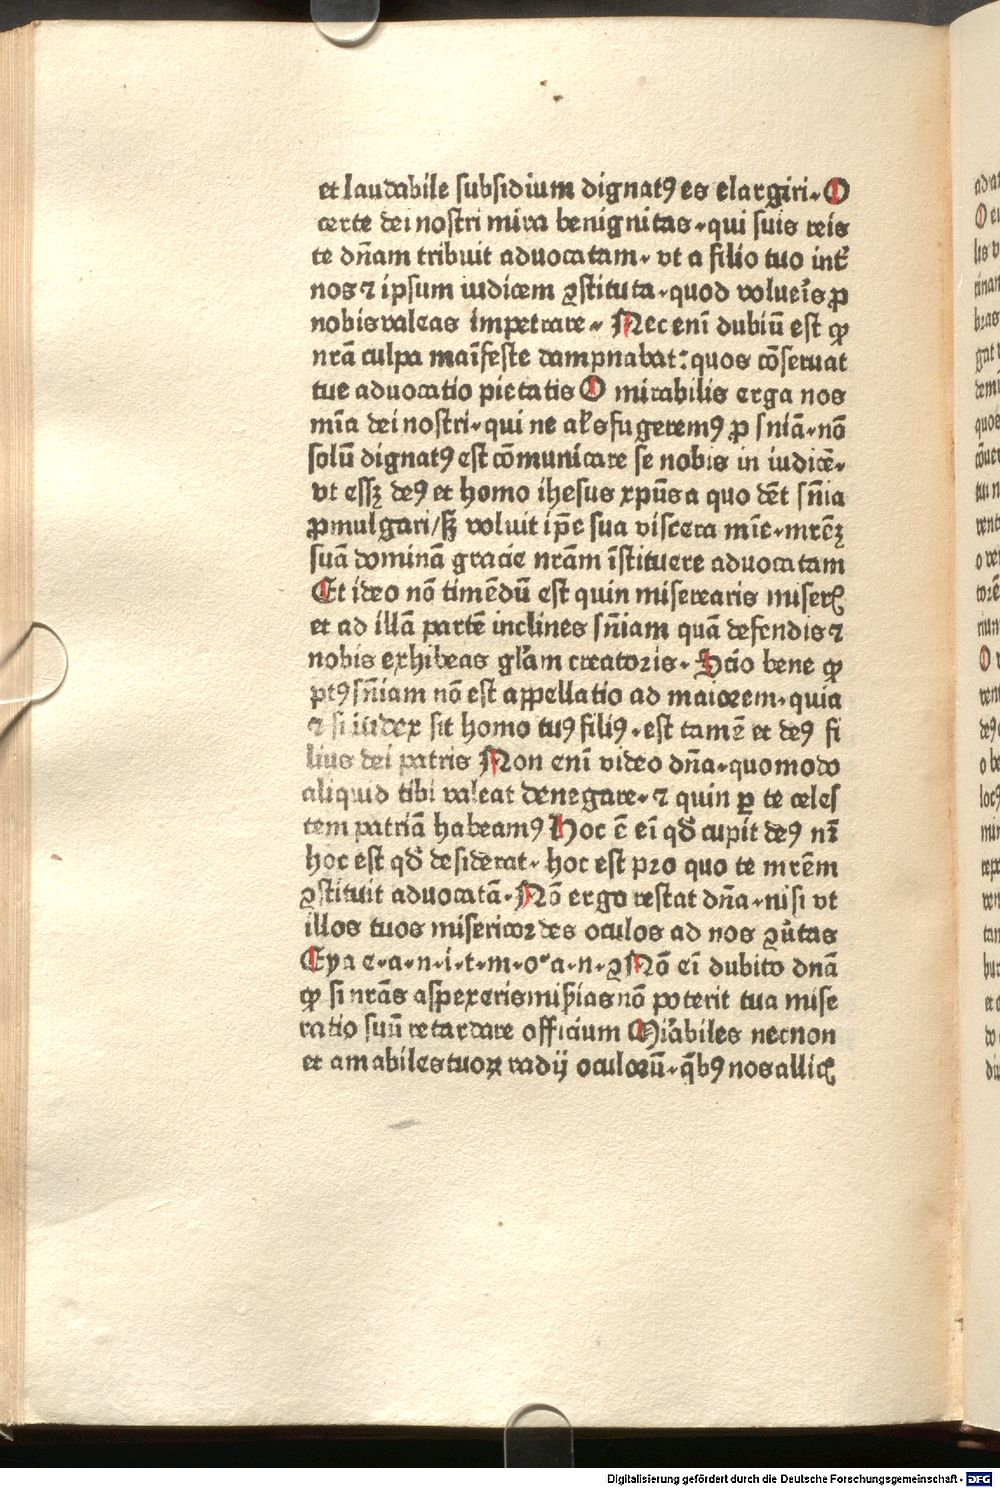 et laudabile subsidium dignatꝰ es elargiri. O
certe dei nostri mira benignitas. qui suis reis
te dn̄am tribuit aduocatam. vt a filio tuo int̄
nos ⁊ ipsum iudicem ꝯstituta. quod volueı̄s ꝓ
nobis valeas impetrare. Nec enī dubiū est ꝙ
nrā culpa maīfeste dampnabat: quos cōseruat
tue aduocatio pietatis O mirabilis erga nos
mīa dei nostri. qui ne al̄s fugeremꝰ ꝓ sniā. nō
solū dignatꝰ est cōmunicare se nobis in iudicē.
vt essꝫ deꝰ et homo ihesus xpūs a quo dēt sn̄ia
ꝓmulgari/sꝫ voluit ip̄e sua viscera mīe. mrēꝫ
suā dominā gracie nrām īstituere aduocatam
Et ideo nō timēdū est quin miserearis miserꝝ
et ad illā partē inclines sn̄iam quā defendis ⁊
nobis exhibeas gl̄am creatoris. Scio bene ꝙ
ptꝰ sn̄iam nō est appellatio ad maiorem. quia
⁊ si iudex sit homo tuꝰ filiꝰ. est tamē et deꝰ fi
lius dei patris Non enī video dn̄a. quomodo
aliquid tibi valeat denegare. ⁊ quin ꝑ te celes
tem patriā habeamꝰ Hoc ē eī qđ cupit deꝰ nr̄
hoc est qđ desiderat. hoc est pro quo te mrēm
ꝯstituit aduocatā. Nō ergo restat dn̄a. nisi vt
illos tuos misericordes oculos ad nos ꝯūtas
Eya e. a. n. i. t. m. o. a. n. ꝯ Nō eī dubito dnā
ꝙ si nrās aspexeris mis̄ias nō poterit tua mise
ratio suū retardare officium Mirābiles necnon
et amabiles tuoꝝ radij oculorū. qb̄ꝰ nos allic̄
Digitalisierung gefördert durch die Deutsche Forschungsgemeinschaft - DFG